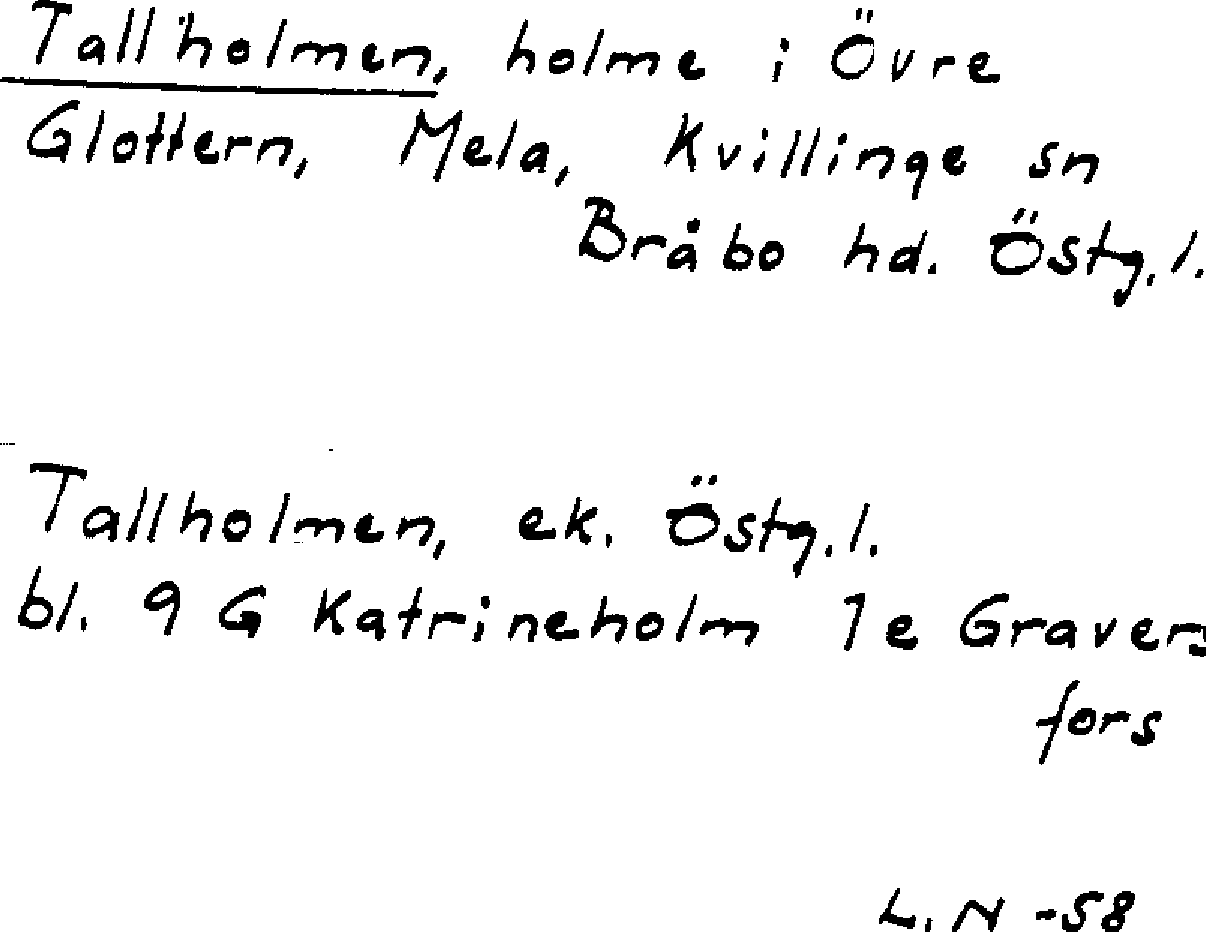 Tallholmen, holme i Övre
Glottern, Mela, Kvillinge sn
Bråbo hd. Östg.l.
Tallholmen, ek. Östg.l.
bl. 9 G Katrineholm 1e Gravers
fors
L. N -58